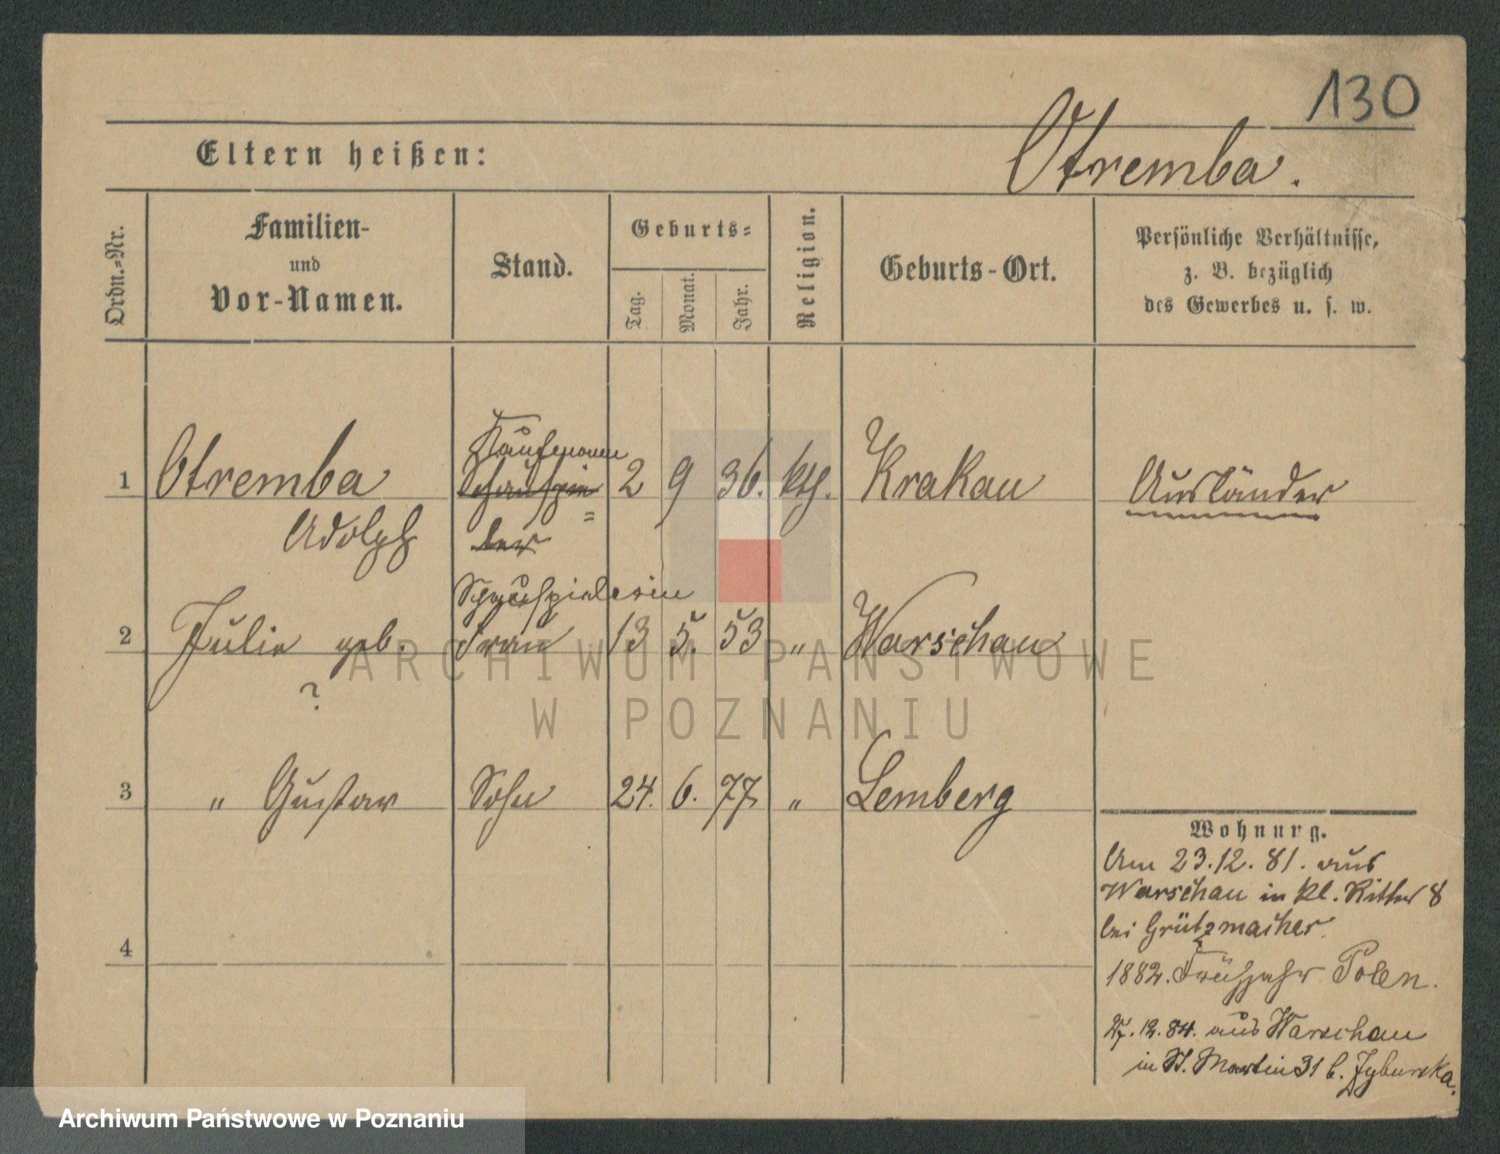 130
Eltern heißen:
Otremba.
Ordn.-Nr.
Familien-
und
Vor-Namen.
Stand.
Geburts-
Tag.
Monat.
Jahr.
Religion.
Geburts-Ort.
Persönliche Verhältnisse,
z. B. bezüglich
des Gewerbes u. s. w.
Kaufmann
1 Otremba Schauspie= 2 9 36. kth. Krakau Ausländer
Adolph ler
Schauspielerin
2 Julie geb. Frau 13 5. 53 " Warschau
?
3 " Gustav Sohn 24. 6. 77 " Lemberg
4
Wohnung.
Am 23.12.81. aus
Warschau in kl. Ritter 8
bei Grützmacher.
1882. Frühjahr Polen.
27.12.84. aus Warschau
in St. Martin 31 b. Zyburska.
ARCHIWUM PAŃSTWOWE
W POZNANIU
Archiwum Państwowe w Poznaniu